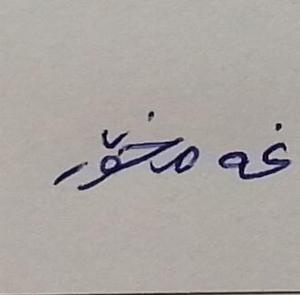 غەمخۆر